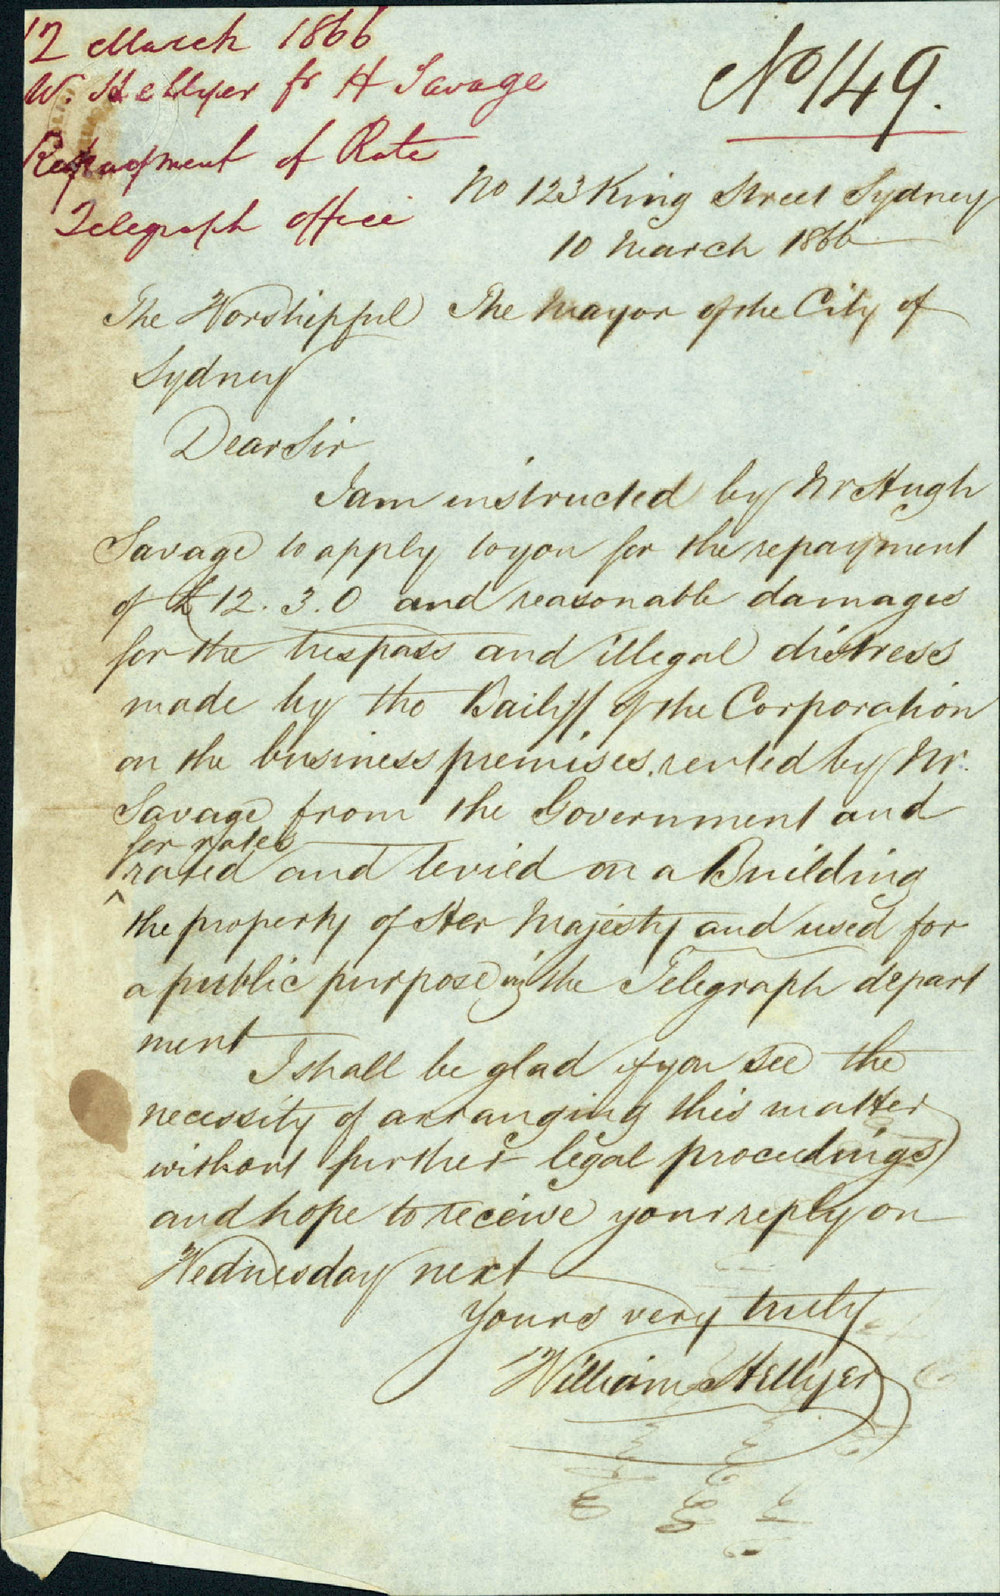 12 March 1866
W. Hellyer fr H Savage
Repayment of Rate
Telegraph office
No 149.
No 123 King Street Sydney
10 March 1866
The Worshipful The Mayor of the City of
Sydney
Dear Sir
I am instructed by Mr Hugh
Savage to apply to you for the repayment
of £12.3.0 and reasonable damages
for the trespass and illegal distress
made by the Bailiff of the Corporation
on the business premises rented by Mr.
Savage from the Government and
for rates
^ rated and levied on a Building
the property of Her Majesty and used for
a public purpose in the Telegraph depart
ment
I shall be glad if you see the
necessity of arranging this matter
without further legal proceedings
and hope to receive your reply on
Wednesday next
Yours very truly
William Hellyer